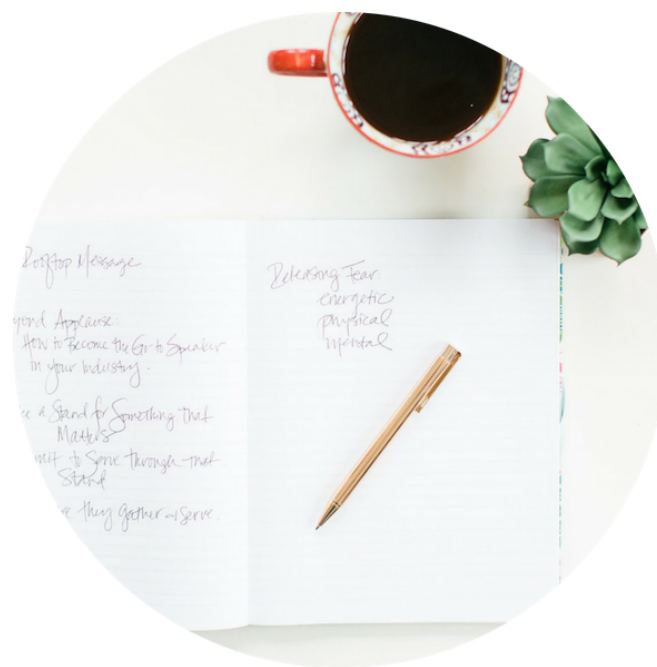 Rooftop Message
Applause:
How to Become the Go to Speaker
in your industry.
a Stand for Something that
Matters
to Serve through that
Stand
they gather Serve.
Releasing Fear
energetic
physical
mental